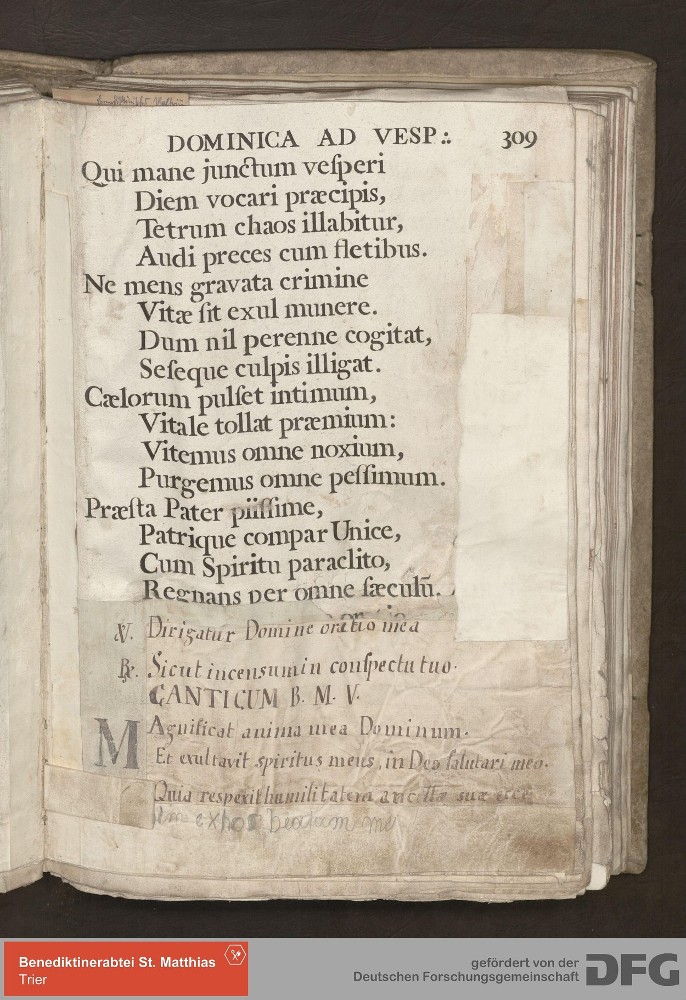 DOMINICA AD VESP.:. 309
Qui mane junctum veſperi
Diem vocari præcipis,
Tetrum chaos illabitur,
Audi preces cum fletibus.
Ne mens gravata crimine
Vitæ ſit exul munere.
Dum nil perenne cogitat,
Seſeque culpis illigat.
Cælorum pulſet intimum,
Vitale tollat præmium:
Vitemus omne noxium,
Purgemus omne peſſimum.
Præſta Pater piiſſime,
Patrique compar Unice,
Cum Spiritu paraclito,
Regnans per omne ſæculũ.
℣. Dirigatur Domine oratio mea
℟. Sicut incensum in conſpectu tuo.
CANTICUM B. M. V.
MAgnificat anima mea Dominum.
Et exultavit spiritus meus, in Deo ſalutari meo.
Quia respexit humilitatem ancillæ suæ ecce
Benediktinerabtei St. Matthias
Trier
gefördert von der
Deutschen Forschungsgemeinschaft DFG